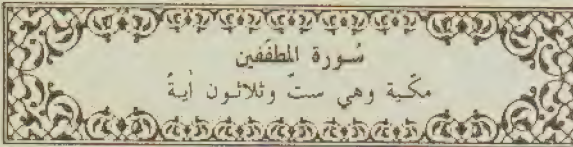 سُورة المطففين
مكّية وهي ستّ وثلاثون أيةً